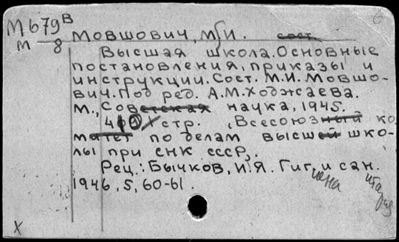 М679в
М-8
Мовшович, М.И. сост.
Высшая школа. Основные
постановления, приказы и
инструкции. Сост. М.И. Мовшо-
вич. Под ред. А.М. Ходжаева.
М., Советская наука, 1945.
стр. (Всесоюзный ко
митет по делам высшей шко-
лы при СНК СССР).
Рец.: Бычков, И.Я. Гигиена и сан.
1946, 5, 60-61.
Х